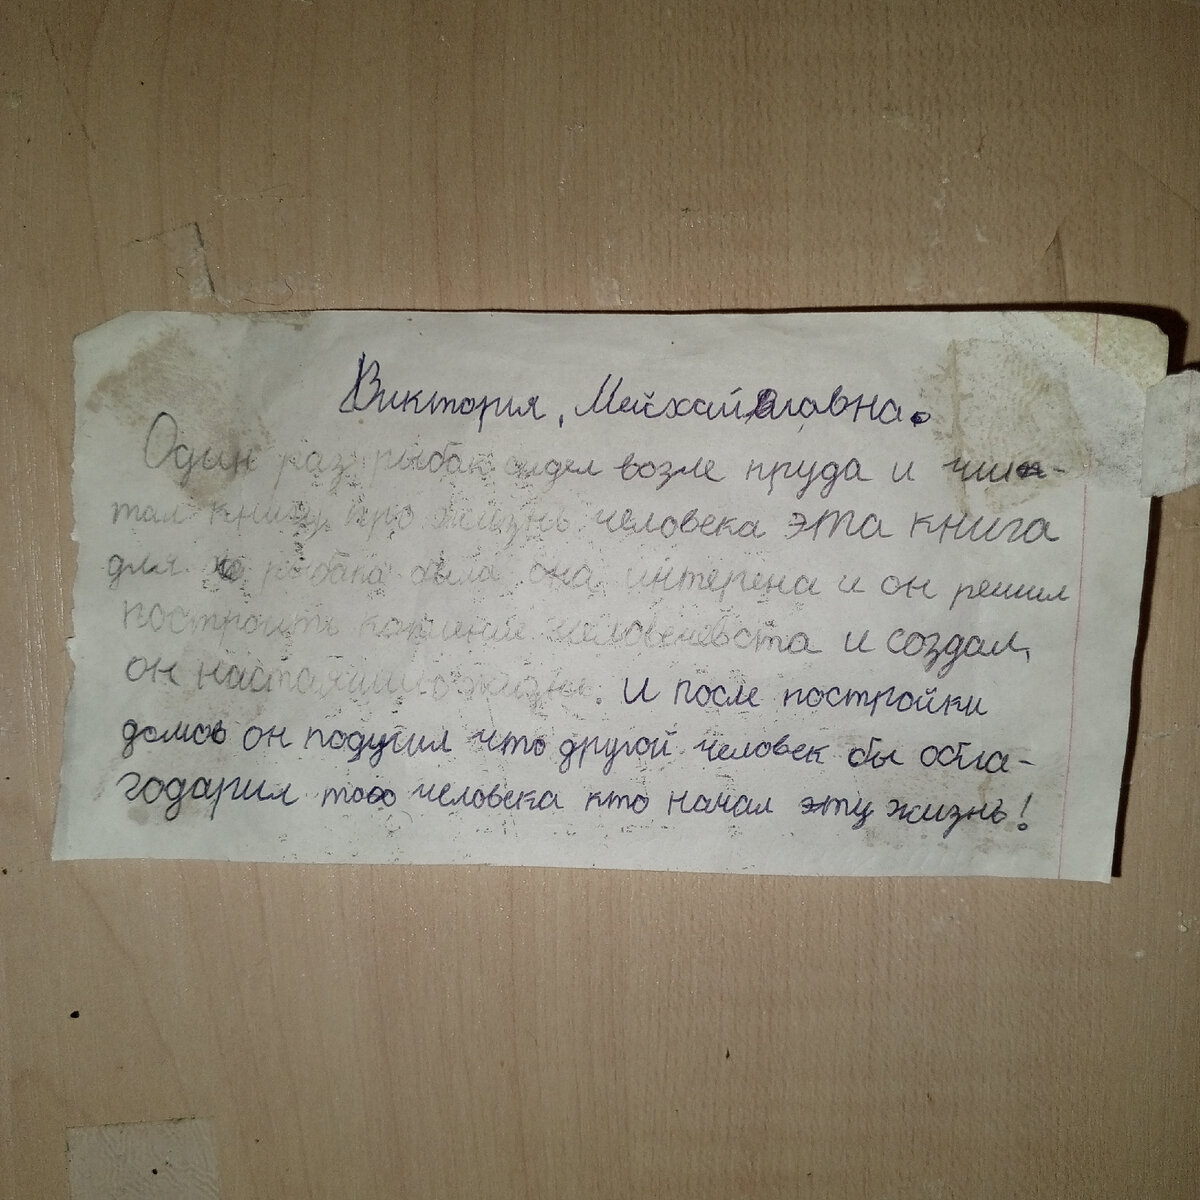 Виктория, Мейхайловна.
Один раз рыбак сидел возле пруда и чит-
тал книгу про жизнь человека эта книга
для рыбака была она интерена и он решил
построить человечевста и создал,
он настаяшию жизнь. И после постройки
домов он подумил что другой человек бы обла-
годарил того человека кто начал эту жизнь!